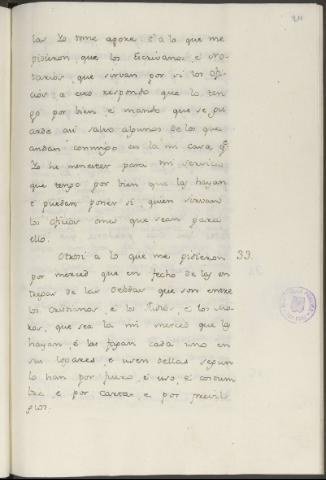 las Yo tome agora. É a lo que me
pidieron que los Escrivanos, e No-
tarios, que sirvan por si los ofi-
cios a esto respondo que lo ten-
go por bien e mando que se gu-
arde asi salvo algunos de los que
andan conmigo en la mi casa, q.
Yo he menester para mi servicio
que tengo por bien que los hayan
e puedan poner si quien sirvan
los oficios omes que sean para
ello.
Otrosi a lo que me pidieron 33.
por merced que en fecho de las en
tregas de las Debdas que son entre
los Cristianos, é los Judios, é los Mo-
ros, que sea la mi merced que las
hayan, é las fagan cada uno en
sus logares, e usen dellas segun
lo han por fuero, é uso, é costum
bre, e por cartas e por previle
gios.